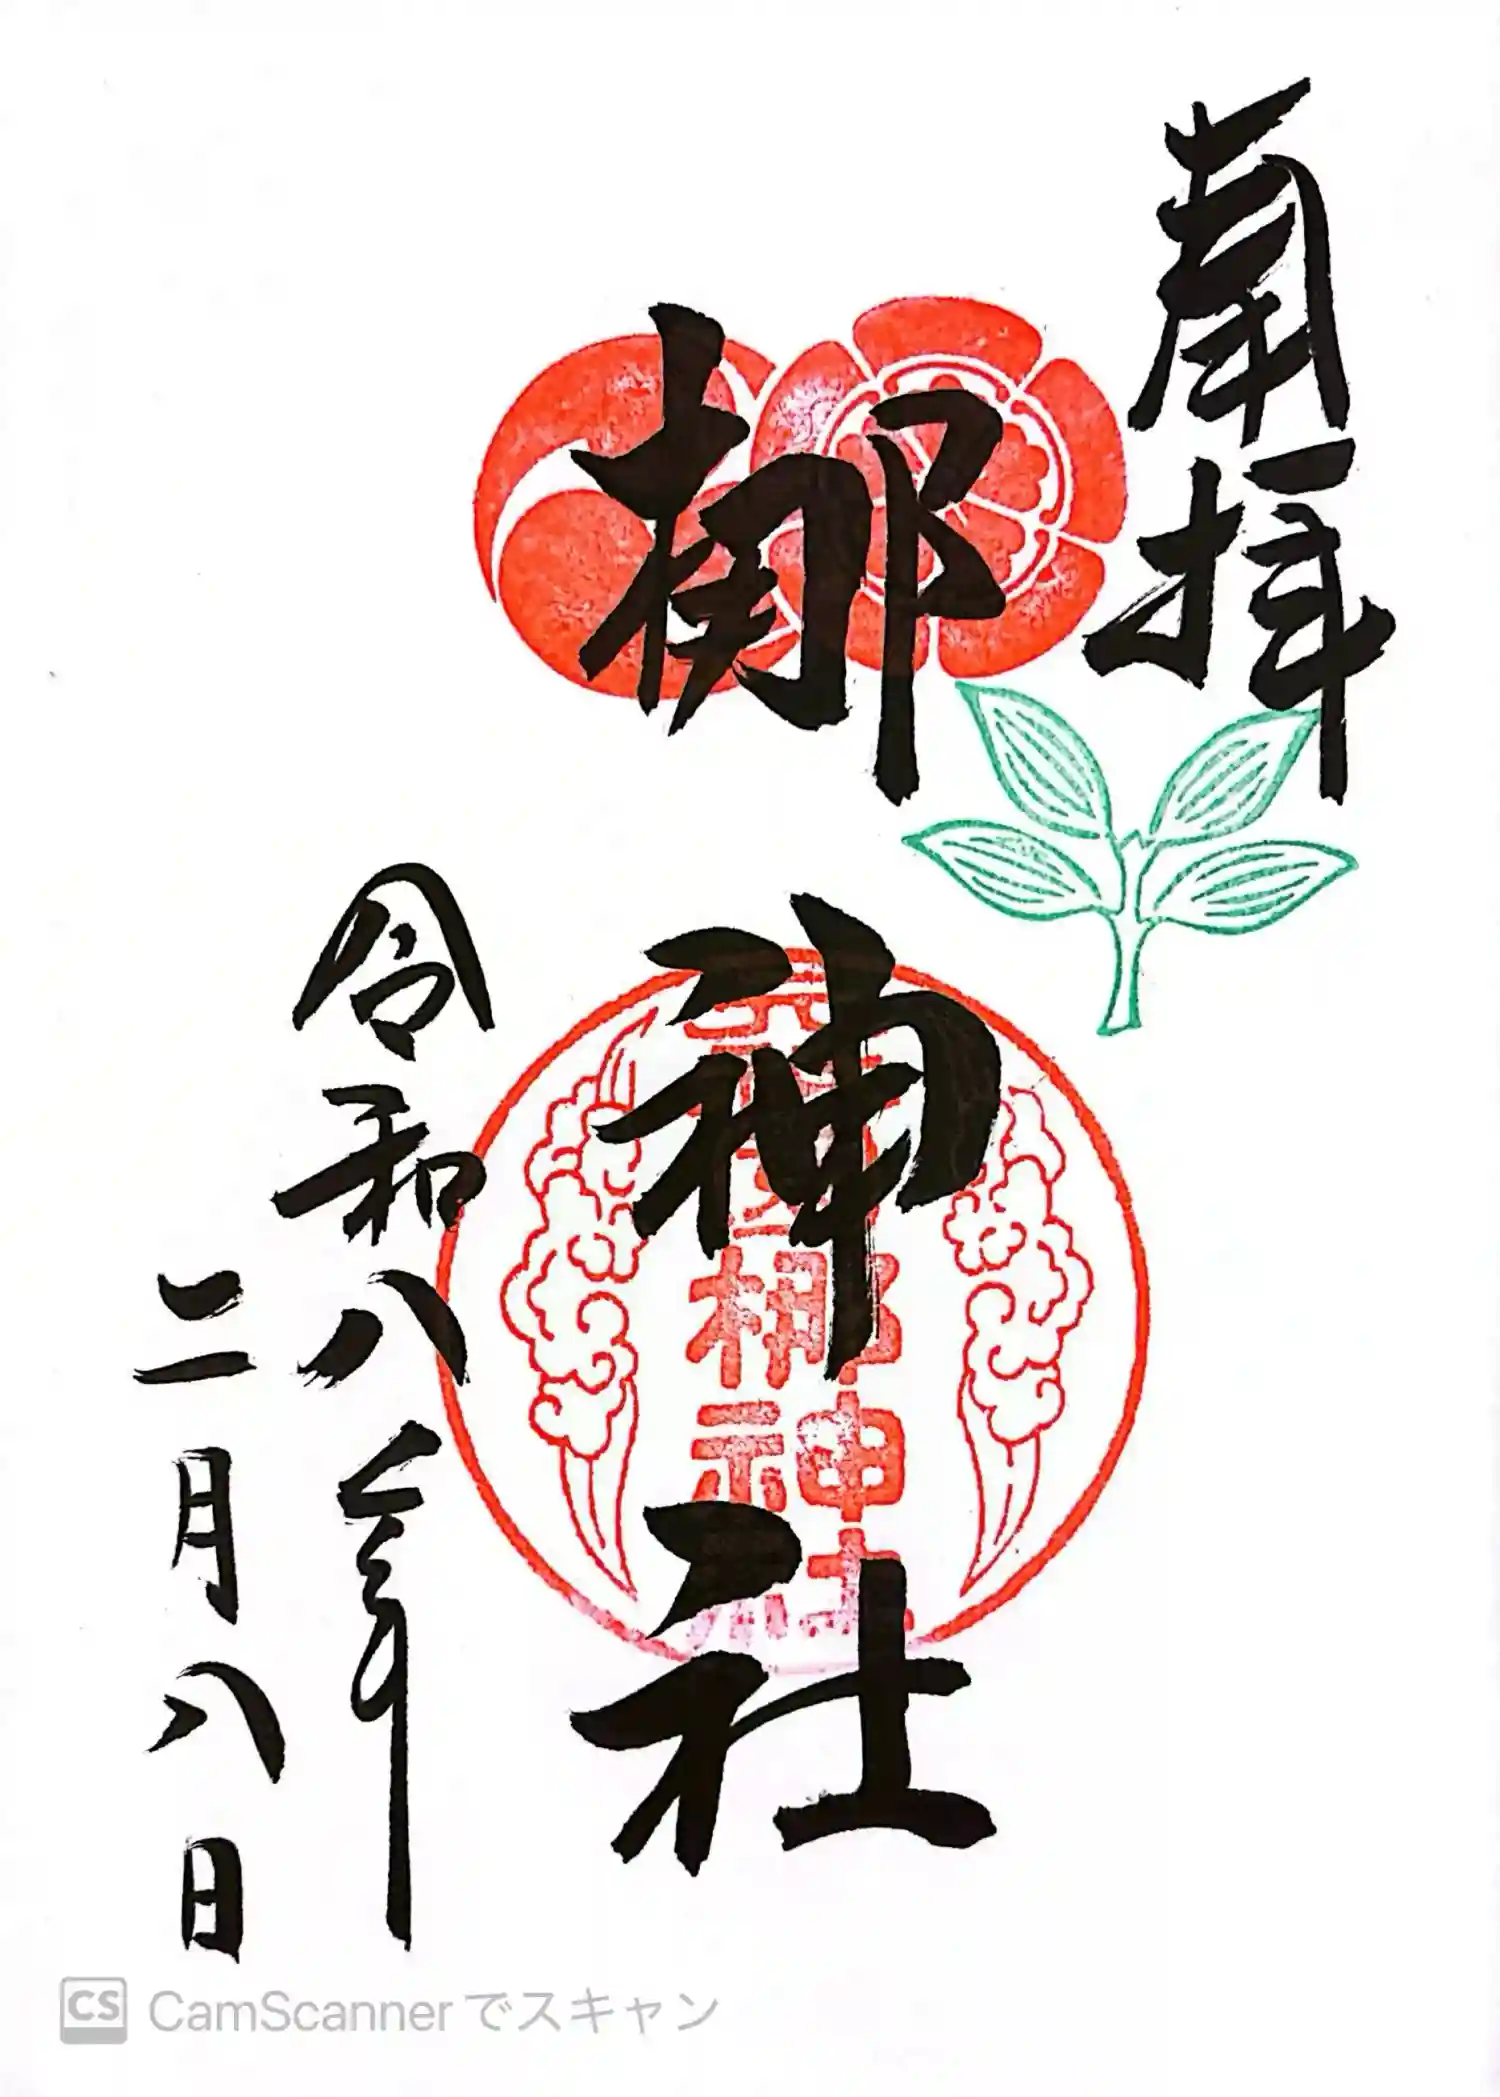 奉拝
梛神社
元祇園梛神社
令和八年
二月八日
CS CamScannerでスキャン